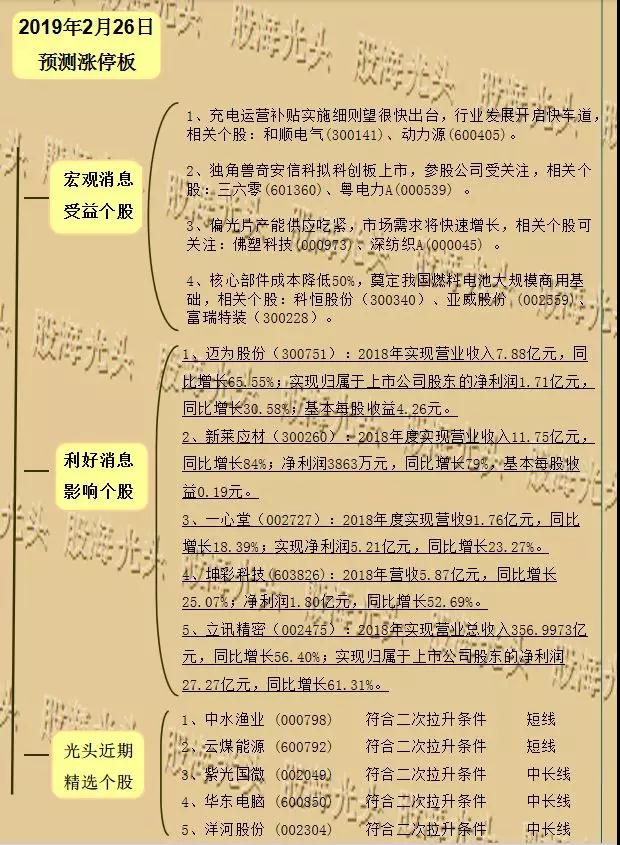 2019年2月26日
预测涨停板
宏观消息
受益个股
1、充电运营补贴实施细则望很快出台，行业发展开启快车道，
相关个股：和顺电气(300141)、动力源(600405)。
2、独角兽奇安信科拟科创板上市，参股公司受关注，相关个
股：三六零(601360)、粤电力A(000539) 。
3、偏光片产能供应吃紧，市场需求将快速增长，相关个股可
关注：佛塑科技(000973)、深纺织A(000045) 。
4、核心部件成本降低50%，奠定我国燃料电池大规模商用基
础，相关个股：科恒股份（300340）、亚威股份（002559)、
富瑞特装（300228）。
利好消息
影响个股
1、迈为股份（300751）：2018年实现营业收入7.88亿元，同
比增长65.55%；实现归属于上市公司股东的净利润1.71亿元，
同比增长30.58%；基本每股收益4.26元。
2、新莱应材（300260）：2018年度实现营业收入11.75亿元，
同比增长84%；净利润3863万元，同比增长79%，基本每股收
益0.19元。
3、一心堂（002727）：2018年度实现营收91.76亿元，同比
增长18.39%；实现净利润5.21亿元，同比增长23.27%。
4、坤彩科技(603826)：2018年营收5.87亿元，同比增长
25.07%；净利润1.80亿元，同比增长52.69%。
5、立讯精密（002475）：2018年实现营业总收入356.9973亿
元，同比增长56.40%；实现归属于上市公司股东的净利润
27.27亿元，同比增长61.31%。
光头近期
精选个股
1、中水渔业 (000798) 符合二次拉升条件 短线
2、云煤能源 (600792) 符合二次拉升条件 短线
3、紫光国微 (002049) 符合二次拉升条件 中长线
4、华东电脑 (600850) 符合二次拉升条件 中长线
5、洋河股份 (002304) 符合二次拉升条件 中长线
股海光头